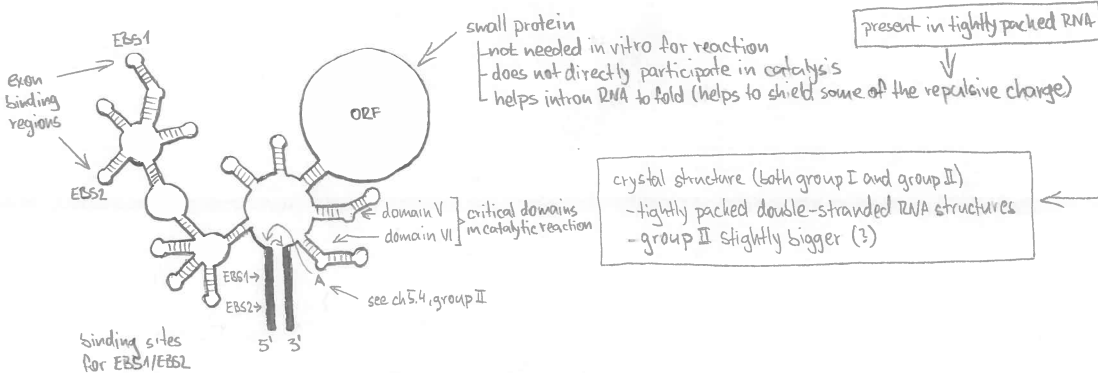 EBS1
exon
binding
regions
EBS2
small protein
- not needed in vitro for reaction
- does not directly participate in catalysis
- helps intron RNA to fold (helps to shield some of the repulsive charge)
present in tightly packed RNA
ORF
domain V
domain VI
critical domains
in catalytic reaction
EBS1→
EBS2→
A
see ch 5.4, group II
5' 3'
binding sites
for EBS1/EBS2
crystal structure (both group I and group II)
- tightly packed double-stranded RNA structures
- group II slightly bigger (?)